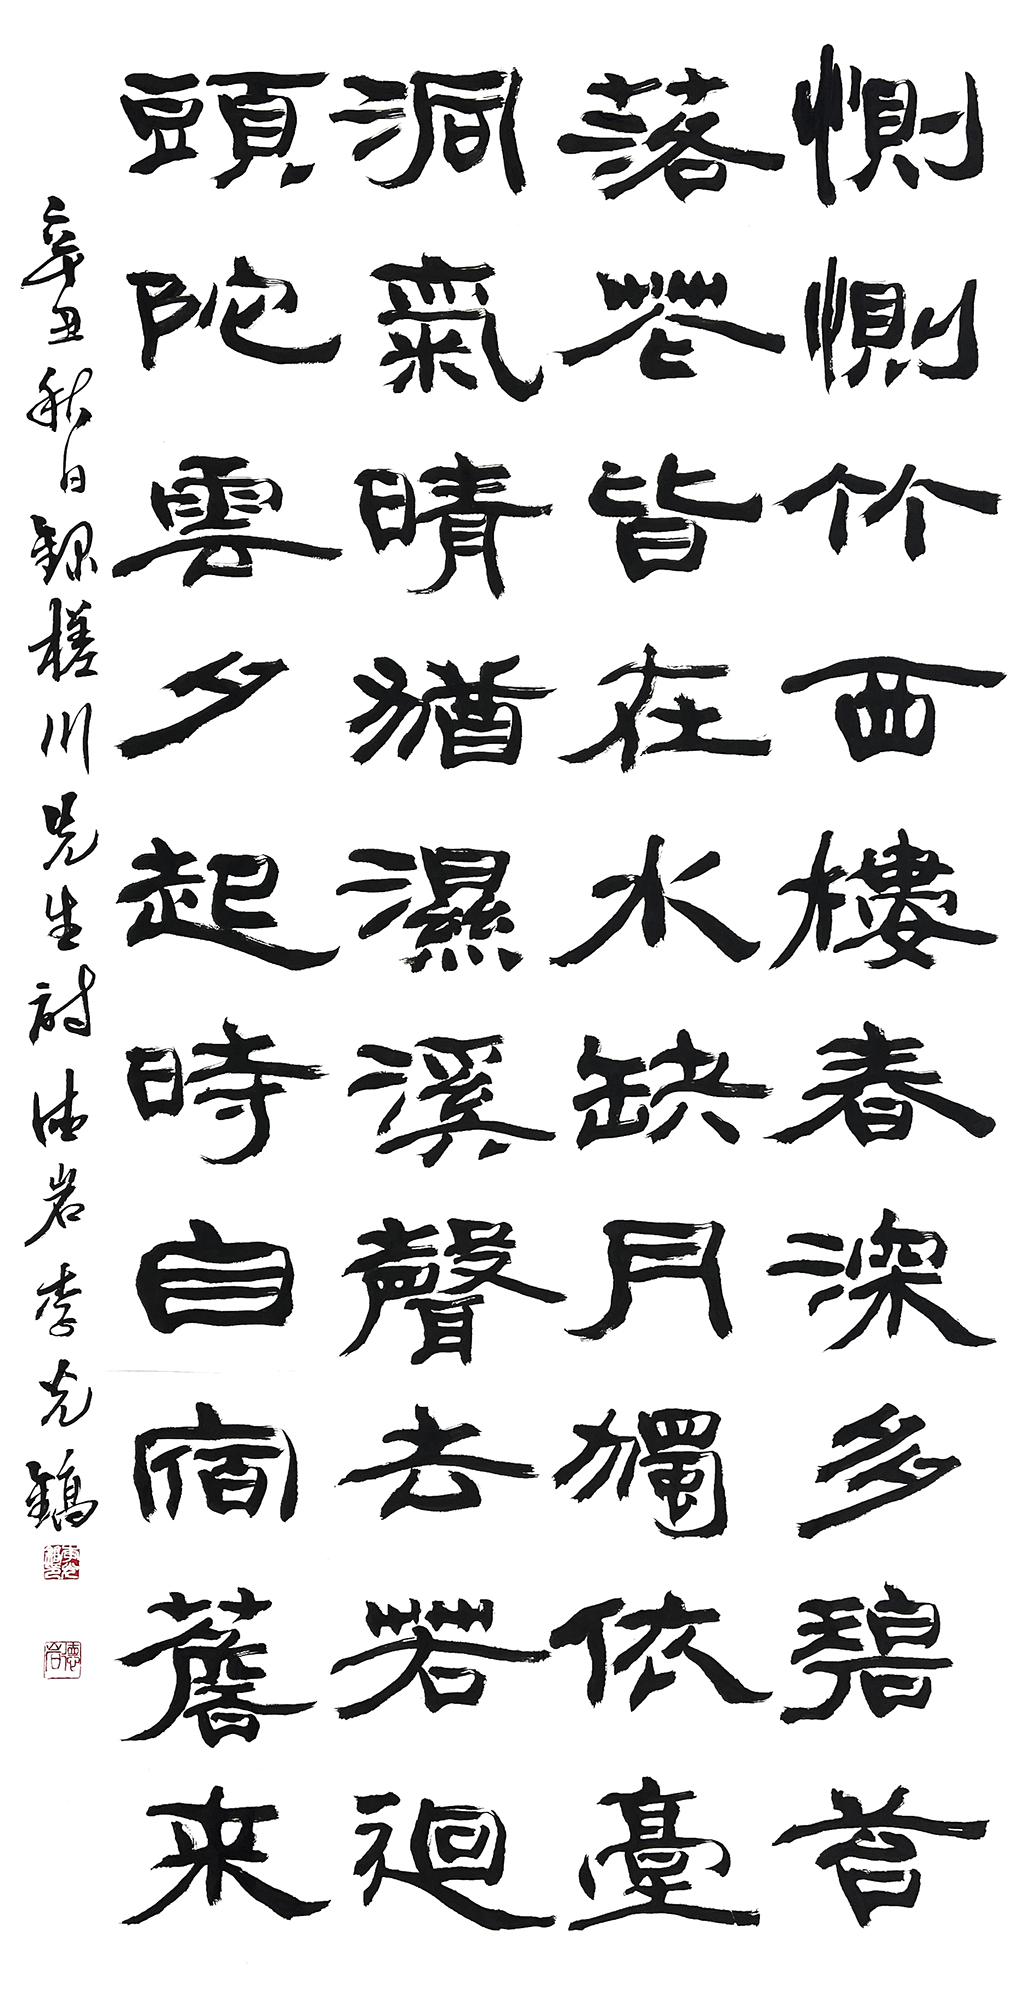 惻惻竹西樓春深多碧苔
落花皆在水缺月獨依臺
洞氣晴猶濕溪聲去若迴
頭陀雲夕起時自宿簷来
辛丑秋日録槎川先生詩德岩李光鎬